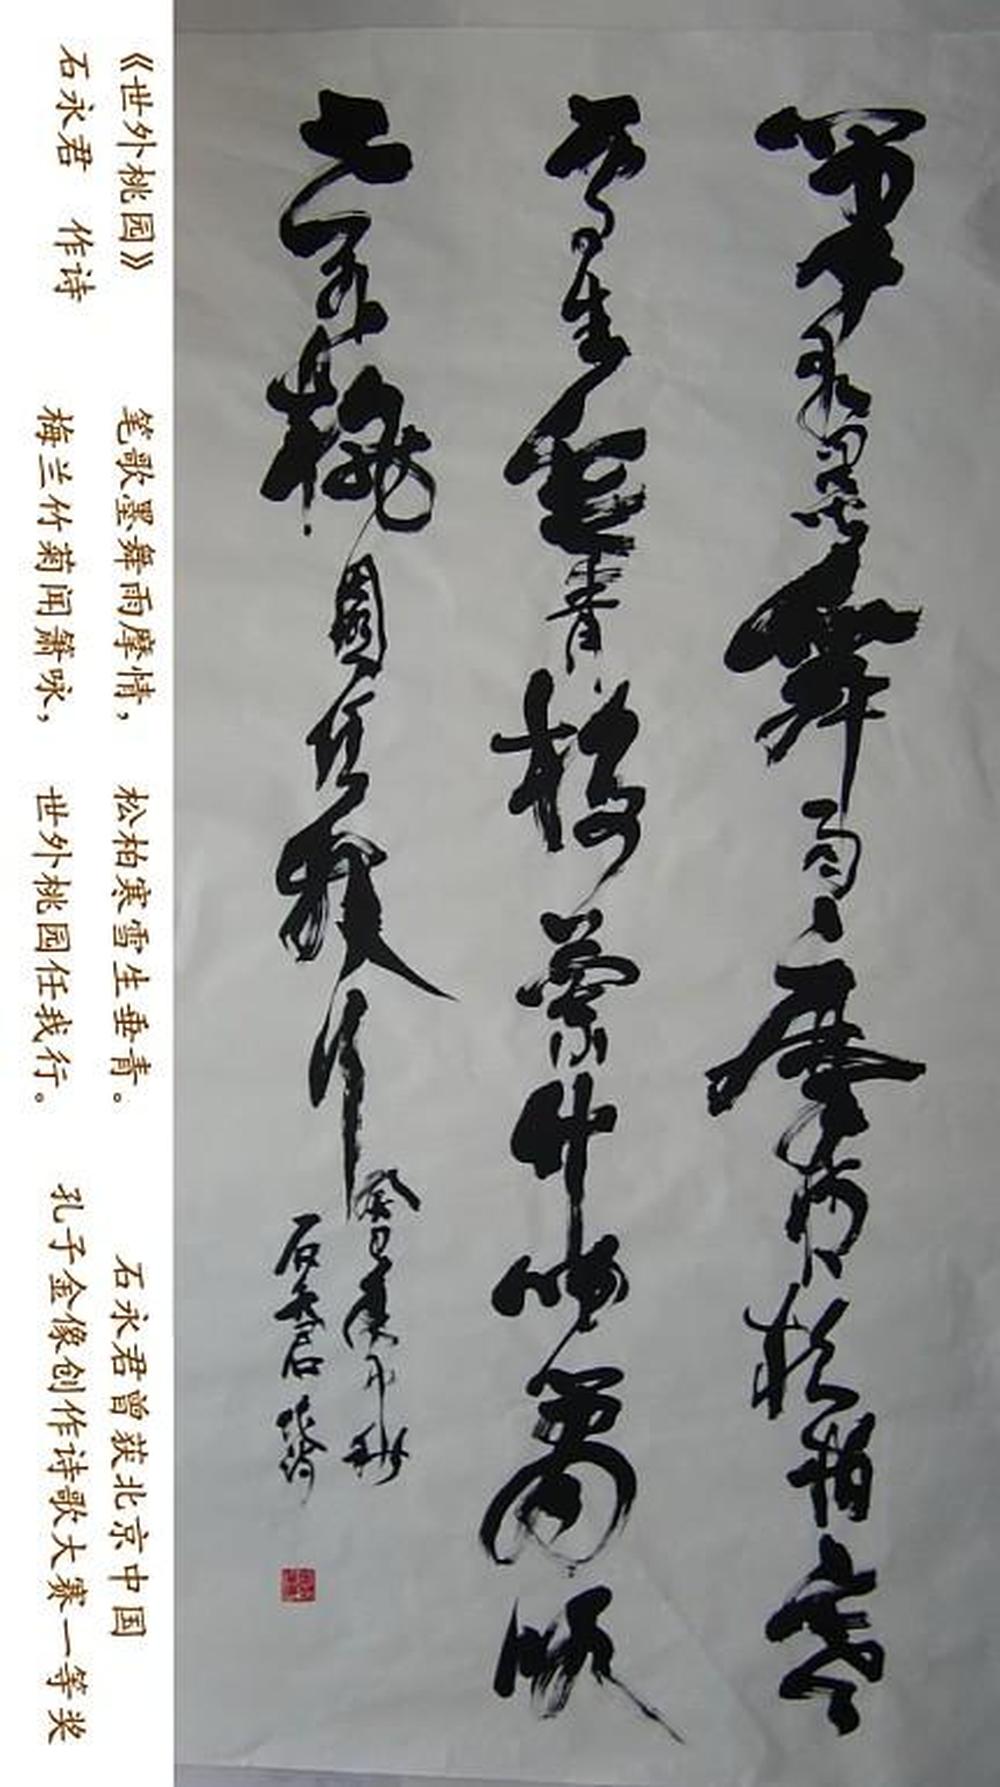 筆歌墨舞雨摩情松柏寒
雪生垂青梅蘭竹箫咏
世外桃園任我行
癸巳秋
石永君作诗
《世外桃园》
石永君 作诗
笔歌墨舞雨摩情，松柏寒雪生垂青。
梅兰竹菊闻箫咏，世外桃园任我行。
石永君曾获北京中国
孔子金像创作诗歌大赛一等奖